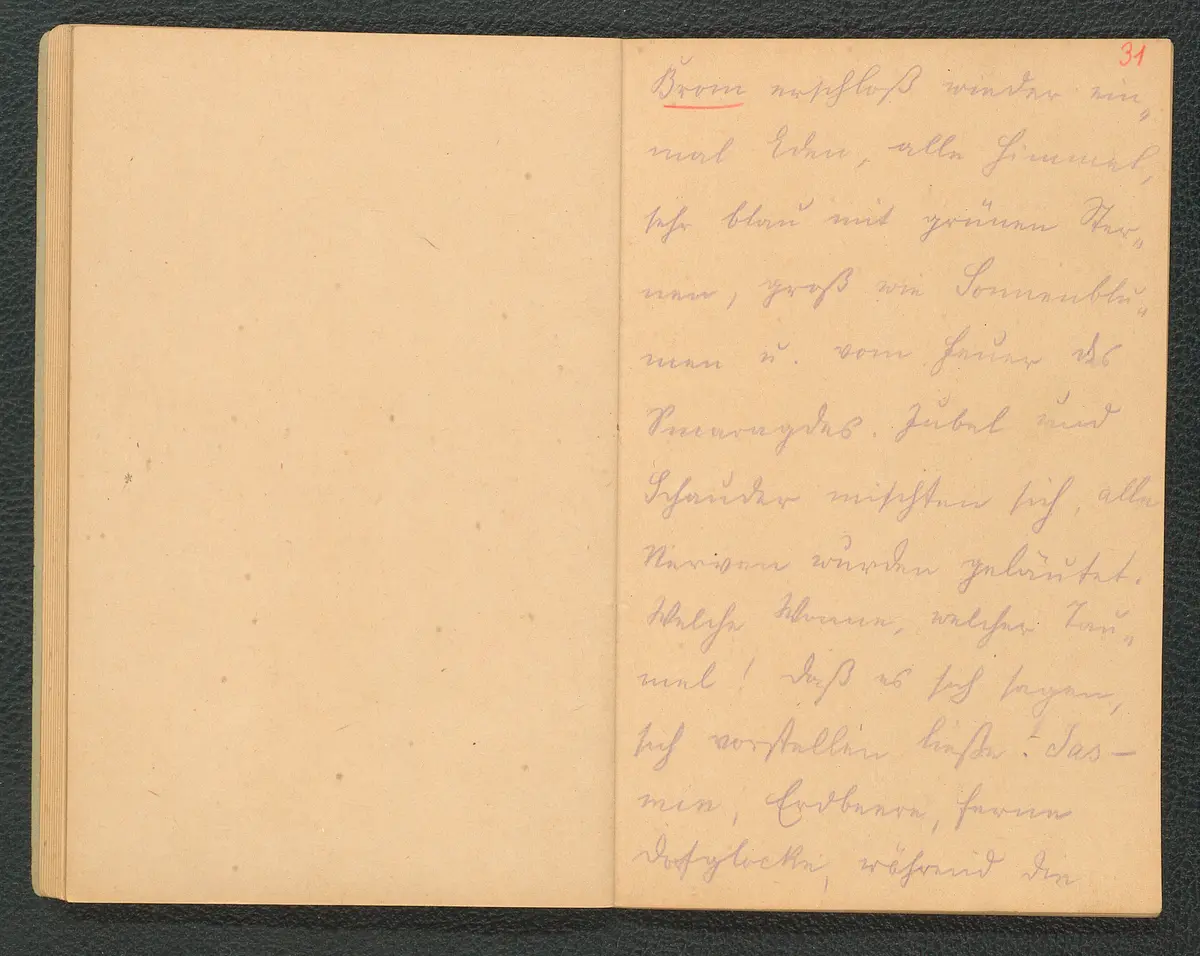 31
Brom erschloß wieder ein„
mal Eden, alle Himmel,
sehr blau mit grünen Ster„
nen, groß wie Sonnenblu„
men u. vom Feuer des
Smaragdes. Jubel und
Schauder mischten sich, alle
Nerven wurden geläutet.
Welche Wonne, welcher Tau„
mel! Daß es sich sagen,
sich vorstellen ließe! Jas–
min, Erdbeere, ferne
Dorfglocke, während die